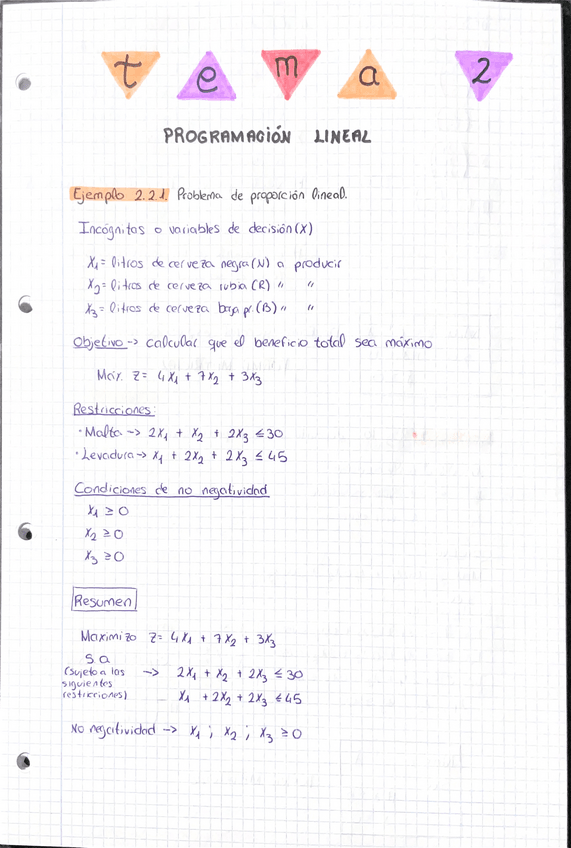 tema 2
PROGRAMACIÓN LINEAL
Ejemplo 2.2.1. Problema de proporción lineal.
Incógnitas o variables de decisión (X)
X₁ = litros de cerveza negra (N) a producir
X₂ = litros de cerveza rubia (R) " "
X₃ = litros de cerveza baja pr. (B) " "
Objetivo -> calcular que el beneficio total sea máximo
Máx. Z = 4X₁ + 7X₂ + 3X₃
Restricciones:
· Malta -> 2X₁ + X₂ + 2X₃ ≤ 30
· Levadura -> X₁ + 2X₂ + 2X₃ ≤ 45
Condiciones de no negatividad
X₁ ≥ 0
X₂ ≥ 0
X₃ ≥ 0
Resumen
Maximizo Z = 4X₁ + 7X₂ + 3X₃
S a
(sujeto a las -> 2X₁ + X₂ + 2X₃ ≤ 30
siguientes
restricciones) X₁ + 2X₂ + 2X₃ ≤ 45
No negatividad -> X₁ ; X₂ ; X₃ ≥ 0